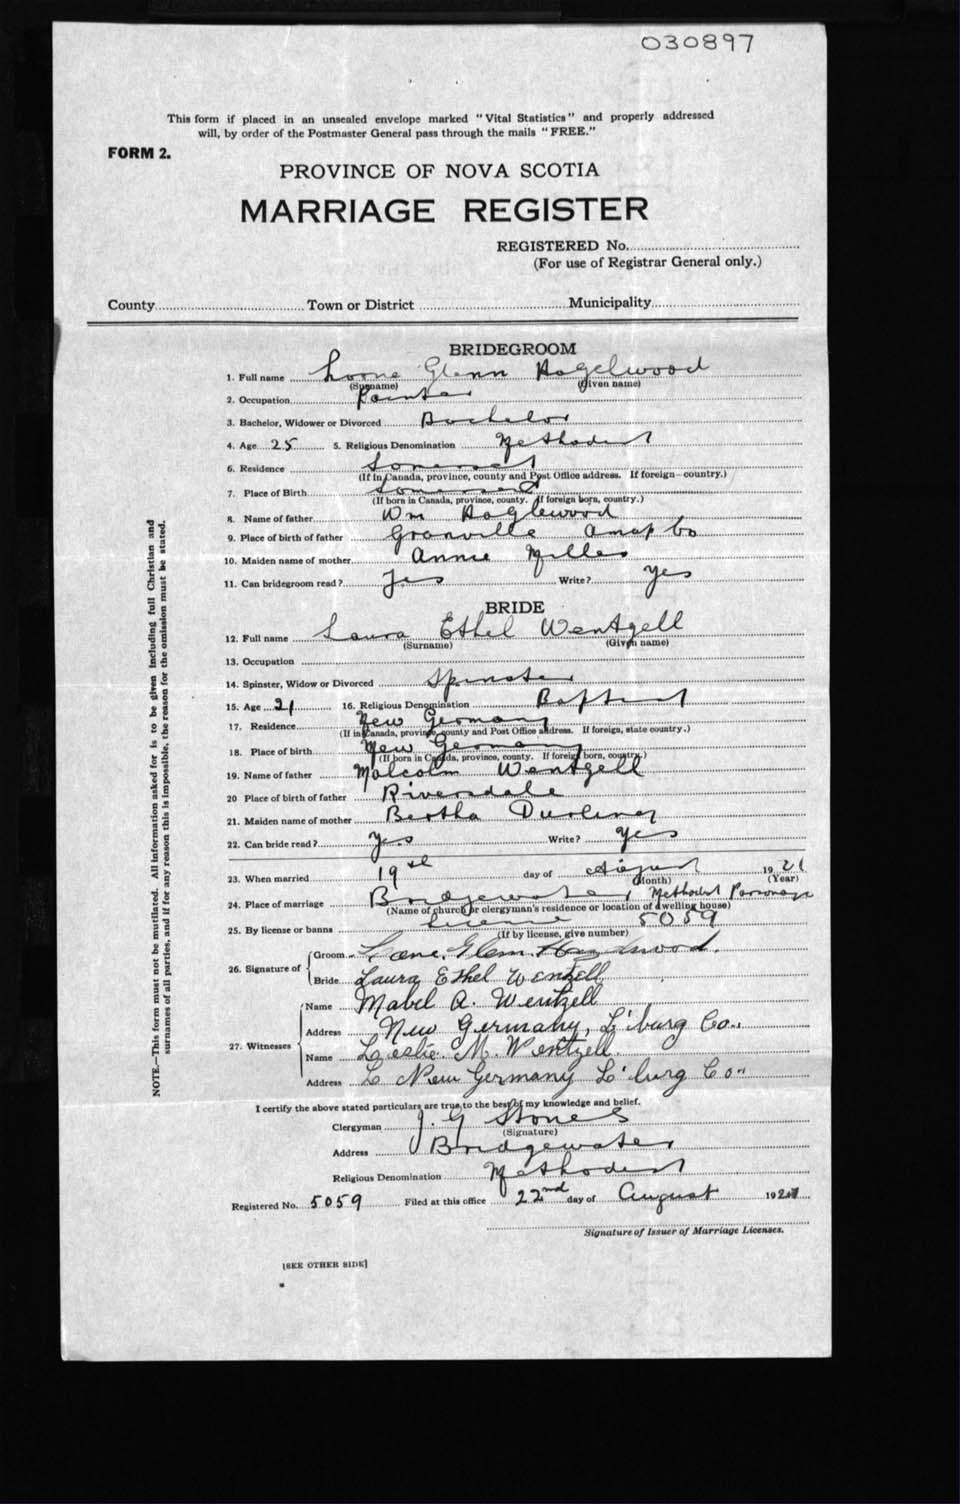 030897
This form if placed in an unsealed envelope marked "Vital Statistics" and properly addressed
will, by order of the Postmaster General pass through the mails "FREE."
FORM 2.
PROVINCE OF NOVA SCOTIA
MARRIAGE REGISTER
REGISTERED No.
(For use of Registrar General only.)
County Town or District Municipality
BRIDEGROOM
1. Full name Lorne Glenn Hagelwood
(Surname) (Given name)
2. Occupation Painter
3. Bachelor, Widower or Divorced Bachelor
4. Age 25 5. Religious Denomination Methodist
6. Residence Somerset
(If in Canada, province, county and Post Office address. If foreign—country.)
7. Place of Birth Somerset
(If born in Canada, province, county. If foreign born, country.)
8. Name of father Wm Haglewood
9. Place of birth of father Granville Anap Co
10. Maiden name of mother Annie Miller
11. Can bridegroom read? Yes Write? Yes
BRIDE
12. Full name Laura Ethel Wentzell
(Surname) (Given name)
13. Occupation
14. Spinster, Widow or Divorced Spinster
15. Age 21 16. Religious Denomination Baptist
17. Residence New Germany
(If in Canada, province, county and Post Office address. If foreign, state country.)
18. Place of birth New Germany
(If born in Canada, province, county. If foreign born, country.)
19. Name of father Malcolm Wentzell
20 Place of birth of father Riversdale
21. Maiden name of mother Bertha
22. Can bride read? Yes Write? Yes
23. When married 19th day of August 1921
(Month) (Year)
24. Place of marriage Bridgewater, Methodist Parsonage
(Name of church or clergyman's residence or location of dwelling house)
25. By license or banns License 5059
(If by license, give number)
26. Signature of Groom Glenn
Bride Laura Ethel Wentzell
27. Witnesses Name Mabel A. Wentzell
Address New Germany, L'burg Co.
Name Leslie M. Wentzell.
Address New Germany L'burg Co.
I certify the above stated particulars are true to the best of my knowledge and belief.
Clergyman J. G Stones
(Signature)
Address Bridgewater
Religious Denomination Methodist
Registered No. 5059 Filed at this office 22nd day of August 1921
Signature of Issuer of Marriage Licenses.
[SEE OTHER SIDE]
NOTE.—This form must not be mutilated. All information asked for is to be given including full Christian and
surnames of all parties, and if for any reason this is impossible, the reason for the omission must be stated.